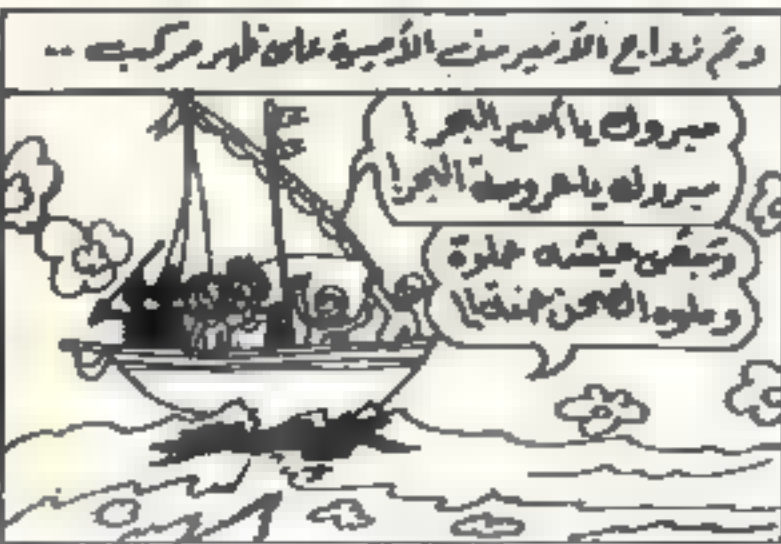 وتم زواج الأمير من الأميرة على ظهر مركب ..
مبروك يا أمير البحر!
مبروك يا عروسة البحر!
وتبقى عيشه حلوة